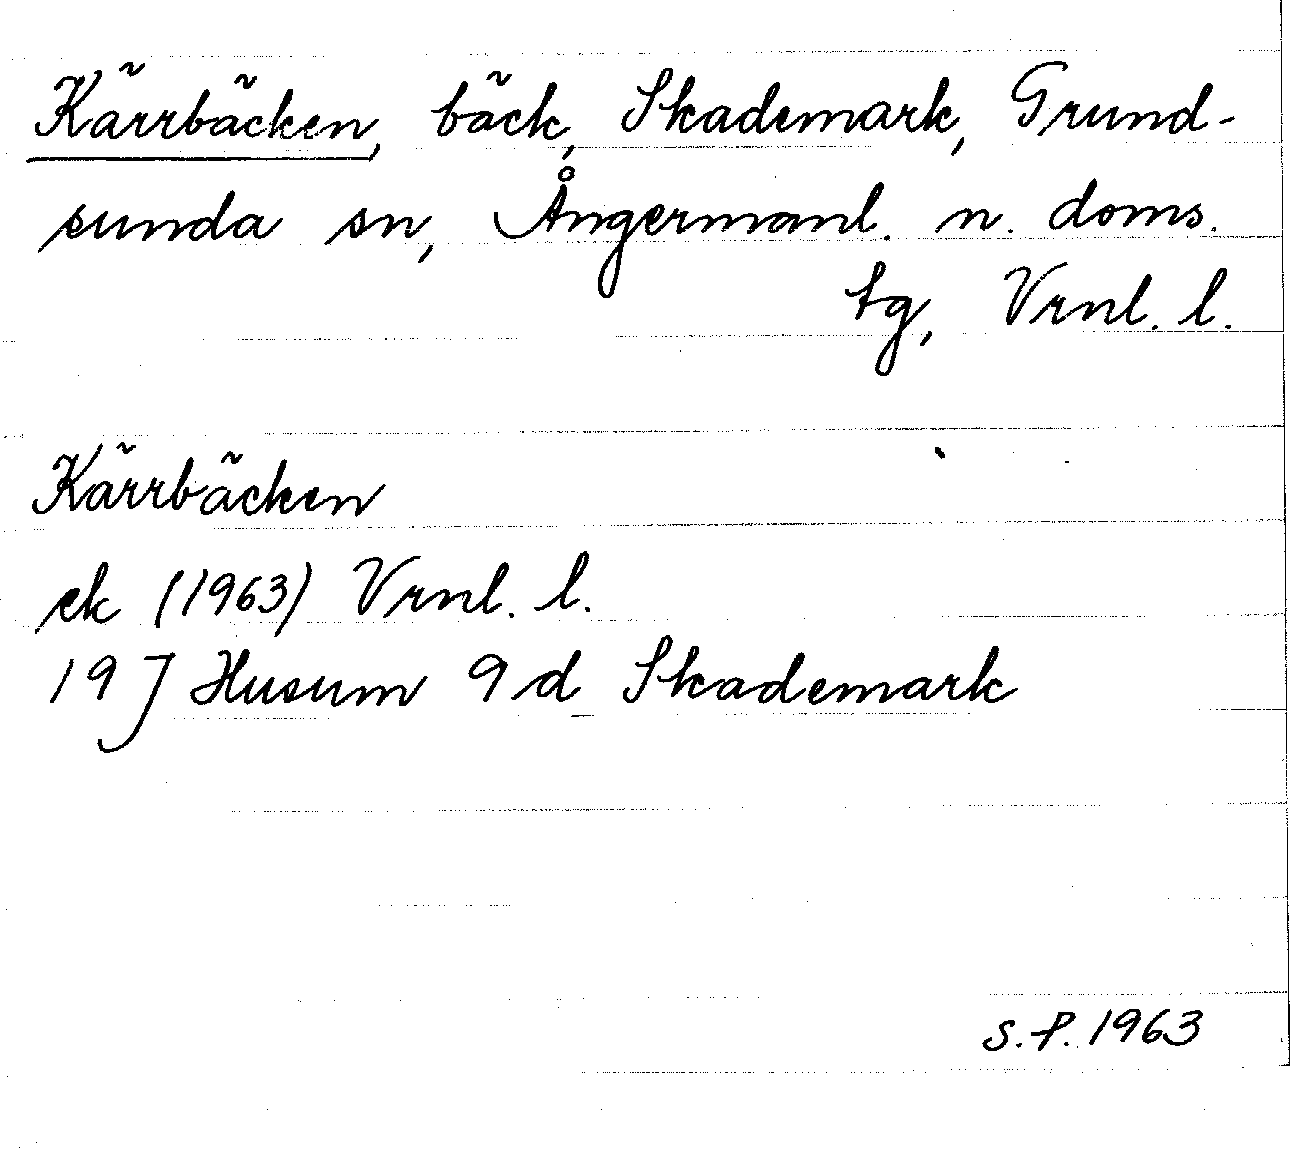 Kärrbäcken, bäck, Skademark, Grund-
sunda sn, Ångermanl. n. doms.
tg, Vrnl. l.
Kärrbäcken
ek (1963) Vrnl. l.
19 J Husum 9 d Skademark
S.P. 1963